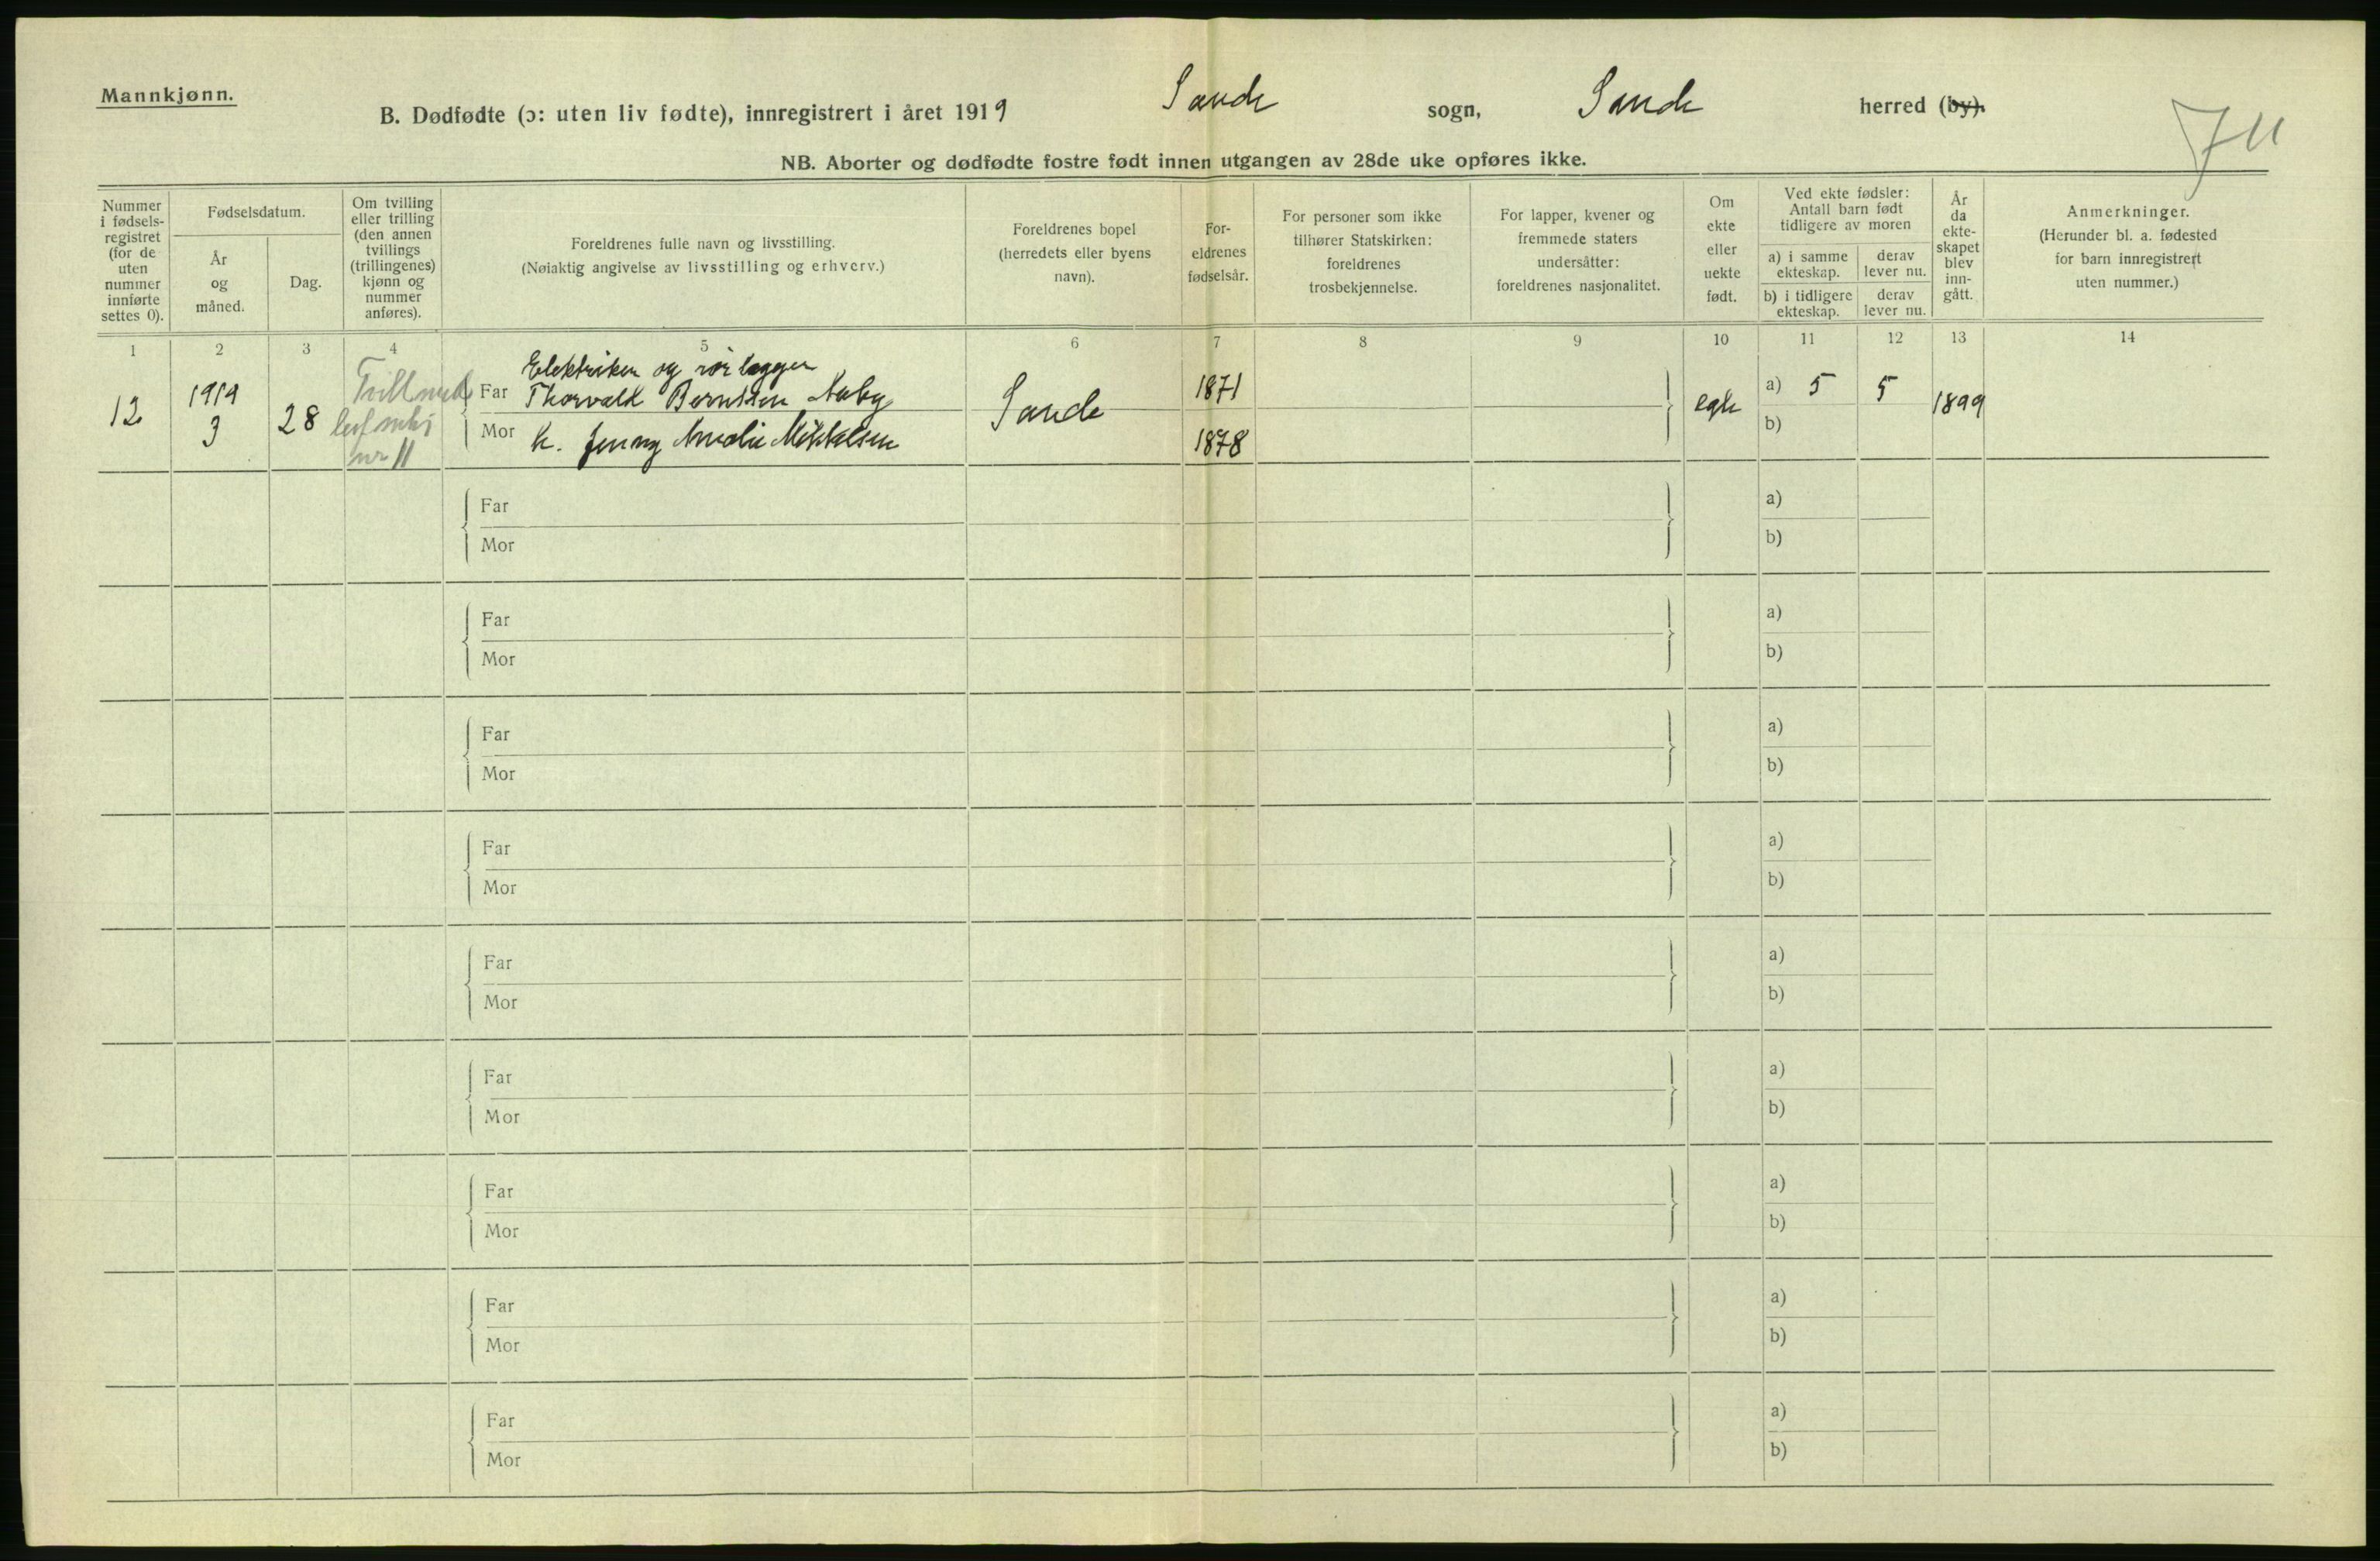 Mannkjønn.
B. Dødfødte (ɔ: uten liv fødte), innregistrert i året 1919 Sande sogn, Sande herred (by).
NB. Aborter og dødfødte fostre født innen utgangen av 28de uke opføres ikke.
Nummer
i fødsels-
registret
(for de
uten
nummer
innførte
settes 0).
Fødselsdatum.
År
og
måned.
Dag.
Om tvilling
eller trilling
(den annen
tvillings
(trillingenes)
kjønn og
nummer
anføres).
Foreldrenes fulle navn og livsstilling.
(Nøiaktig angivelse av livsstilling og erhverv.)
Foreldrenes bopel
(herredets eller byens
navn).
For-
eldrenes
fødselsår.
For personer som ikke
tilhører Statskirken:
foreldrenes
trosbekjennelse.
For lapper, kvener og
fremmede staters
undersåtter:
foreldrenes nasjonalitet.
Om
ekte
eller
uekte
født.
Ved ekte fødsler:
Antall barn født
tidligere av moren
a) i samme
ekteskap.
derav
lever nu.
b) i tidligere
ekteskap.
derav
lever nu.
År
da
ekte-
skapet
blev
inn-
gått.
Anmerkninger.
(Herunder bl. a. fødested
for barn innregistrert
uten nummer.)
1 2 3 4 5 6 7 8 9 10 11 12 13 14
12
1919
3
28
nr 11
Elektriker og rørlægger
Far Thorvald Berntsen
Mor Jenny Amalie Mikkelsen
Sande
1871
1878
egte
a) 5 5
b)
1899
Far
Mor
a)
b)
Far
Mor
a)
b)
Far
Mor
a)
b)
Far
Mor
a)
b)
Far
Mor
a)
b)
Far
Mor
a)
b)
Far
Mor
a)
b)
Far
Mor
a)
b)
Far
Mor
a)
b)